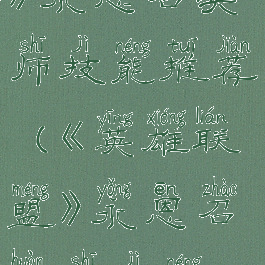 shī jì néng tuī jiàn
师技能推荐
yīng xióng lián
(《英雄联
méng yǒng ēn zhào
盟》永恩召
huàn shī jì néng